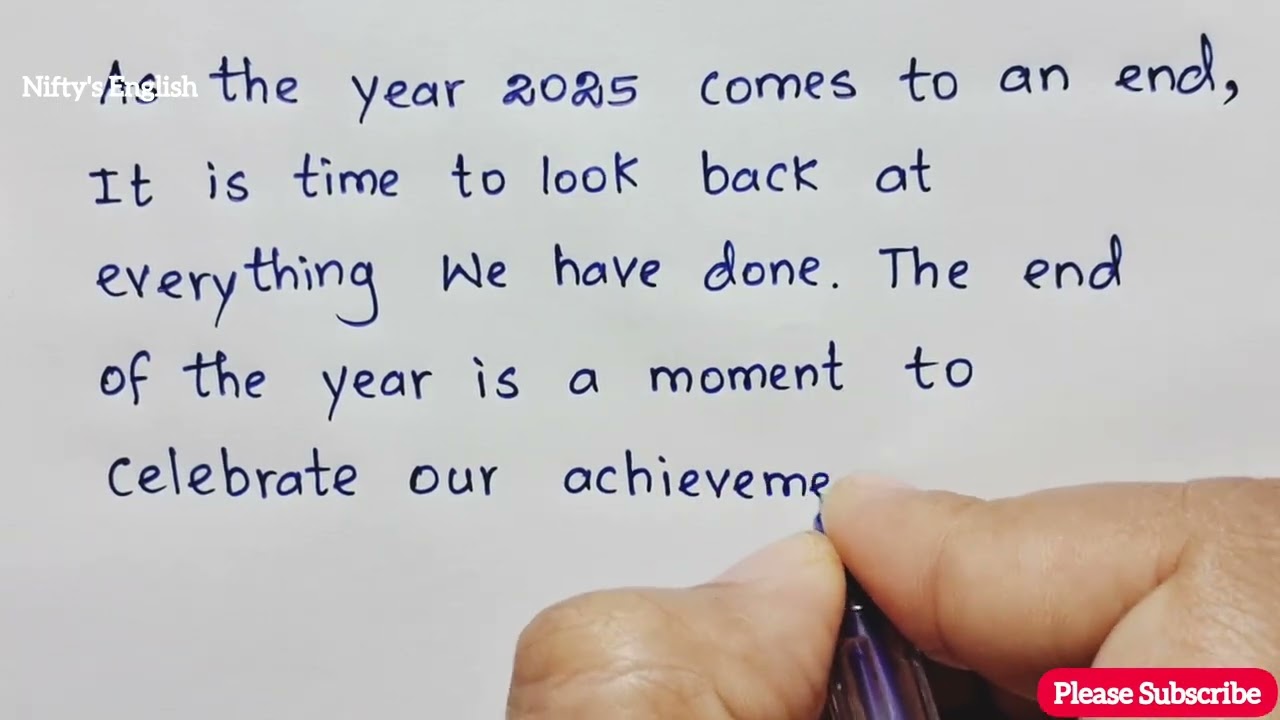 Nifty's English
As the year 2025 comes to an end,
It is time to look back at
everything We have done. The end
of the year is a moment to
celebrate our achieveme
Please Subscribe